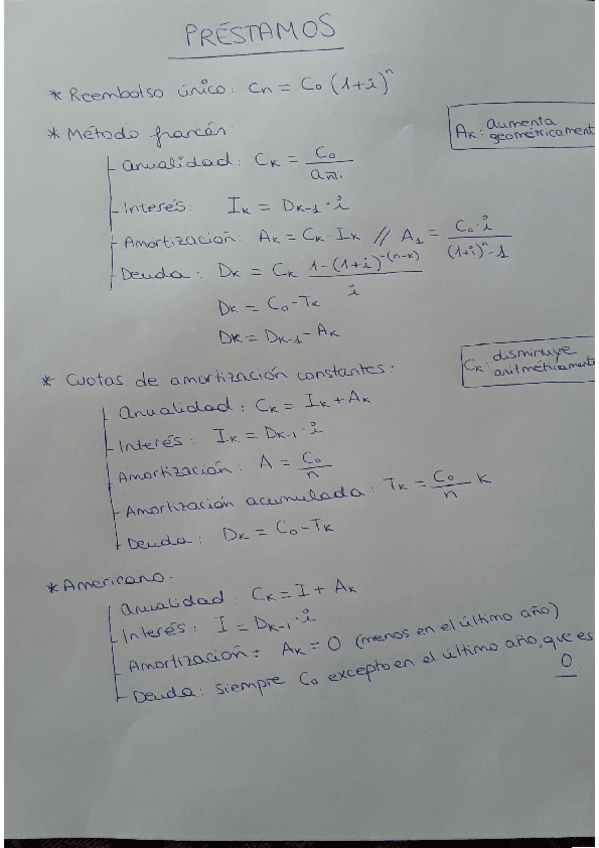 PRÉSTAMOS
* Reembolso único: Cn = C₀ (1+i)ⁿ
* Método francés:
Aκ: aumenta
geométricament
Anualidad: Cκ = C₀ / a n̅ᵢ
Interés: Iκ = Dκ-₁ · i
Amortización: Aκ = Cκ - Iκ // A₁ = C₀·i / (1+i)ⁿ-1
Deuda: Dκ = Cκ 1-(1+i)^-(n-κ) / i
Dκ = C₀ - Tκ
Dκ = Dκ-₁ - Aκ
* Cuotas de amortización constantes:
Cκ: disminuye
aritméticamente
Anualidad: Cκ = Iκ + Aκ
Interés: Iκ = Dκ-₁ · i
Amortización: A = C₀ / n
Amortización acumulada: Tκ = C₀ / n κ
Deuda: Dκ = C₀ - Tκ
* Americano:
Anualidad: Cκ = I + Aκ
Interés: I = Dκ-₁ · i
Amortización: Aκ = 0 (menos en el último año)
Deuda: siempre C₀ excepto en el último año, que es
0